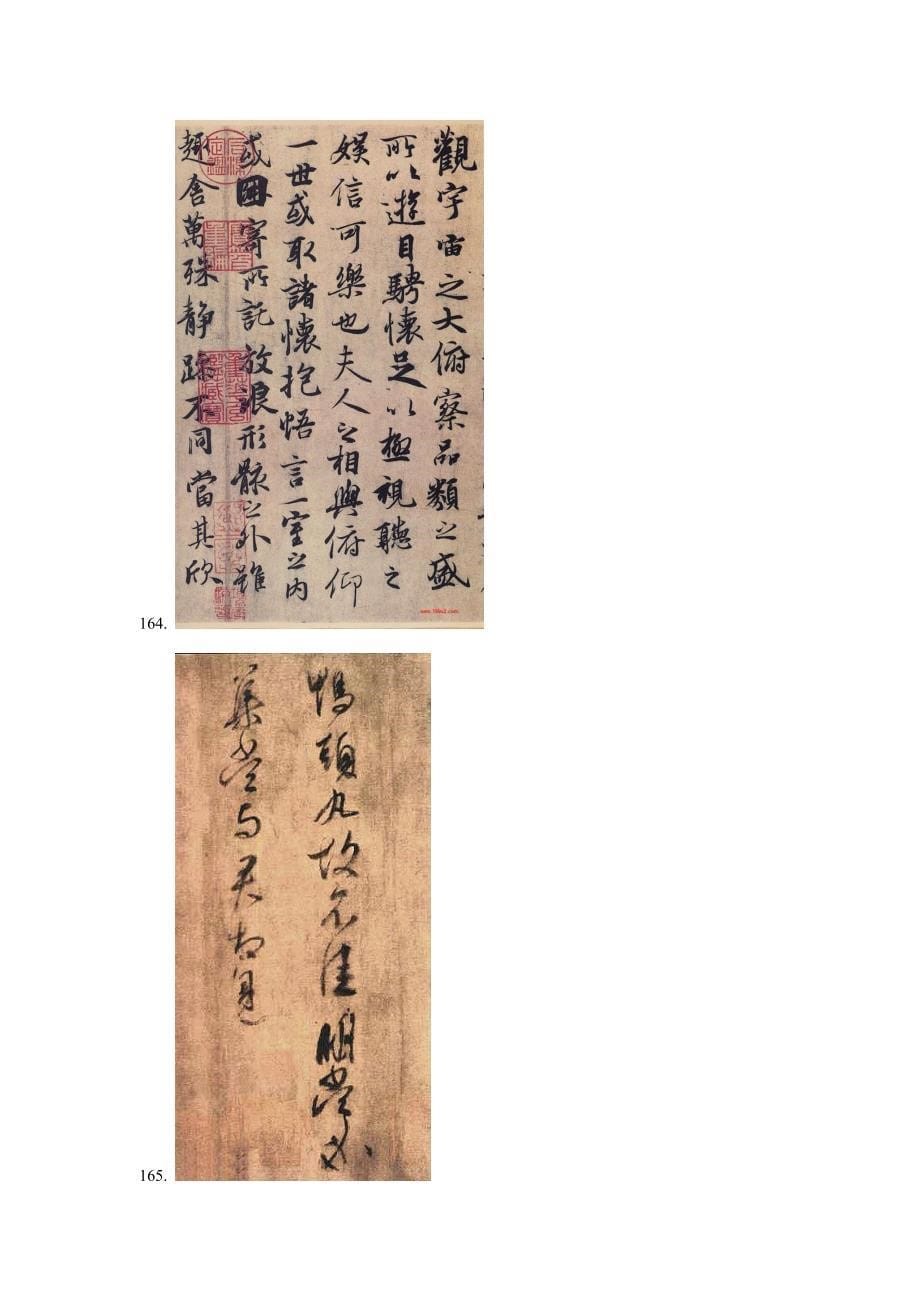 164.
觀宇宙之大俯察品類之盛
所以遊目騁懷足以極視聽之
娛信可樂也夫人之相與俯仰
一世或取諸懷抱悟言一室之內
或因寄所託放浪形骸之外雖
趣舍萬殊静躁不同當其欣
165.
鴨頭丸故不佳明當必
集當与君相見